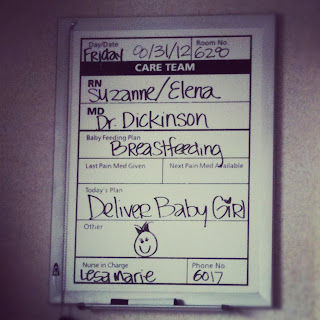 Day/Date Room No.
Friday 6290
CARE TEAM
RN
Suzanne/Elena
MD
Dr. Dickinson
Baby Feeding Plan
Breastfeeding
Last Pain Med Given Next Pain Med Available
Today's Plan
Deliver Baby Girl
Other
Nurse in Charge Phone No.
Lesa Marie 6017